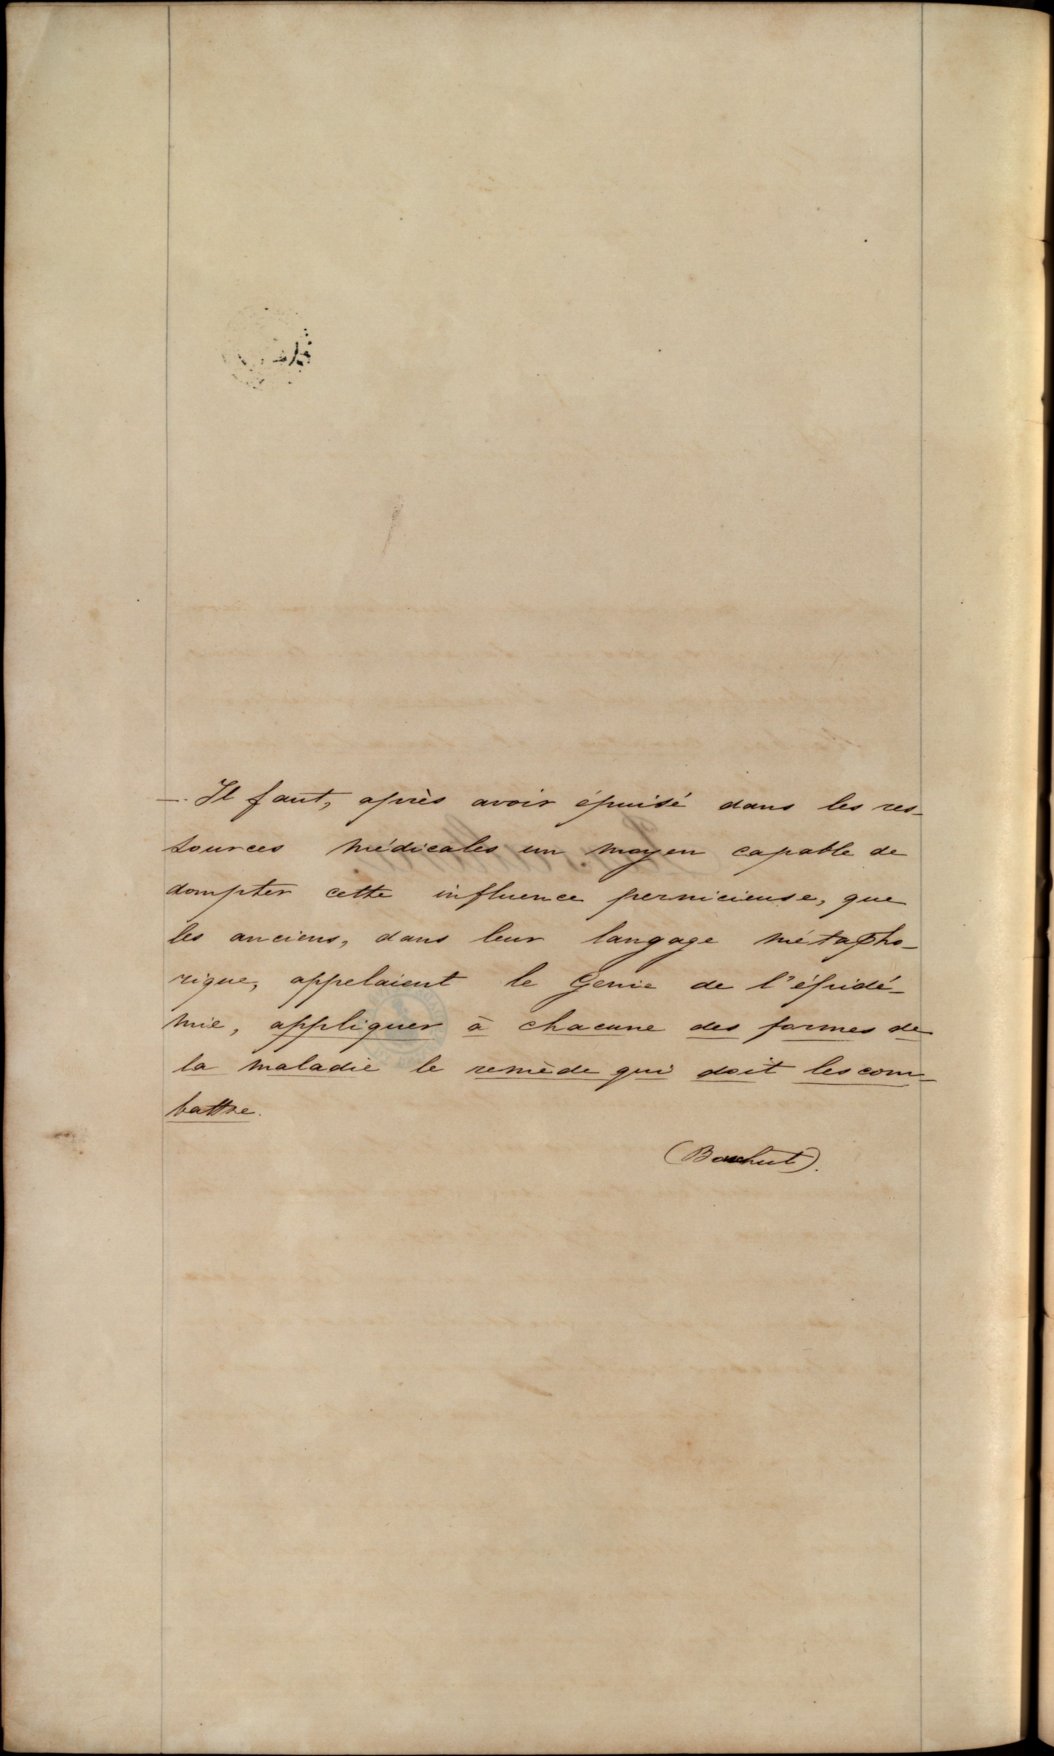 — Il faut, après avoir épuisé dans les res-
sources médicales un moyen capable de
dompter cette influence pernicieuse, que
les anciens, dans leur langage métapho-
rique, appelaient le Genie de l'épidé-
mie, appliquer à chacune des formes de
la maladie le remède qui doit les com-
battre.
(Bouchut).